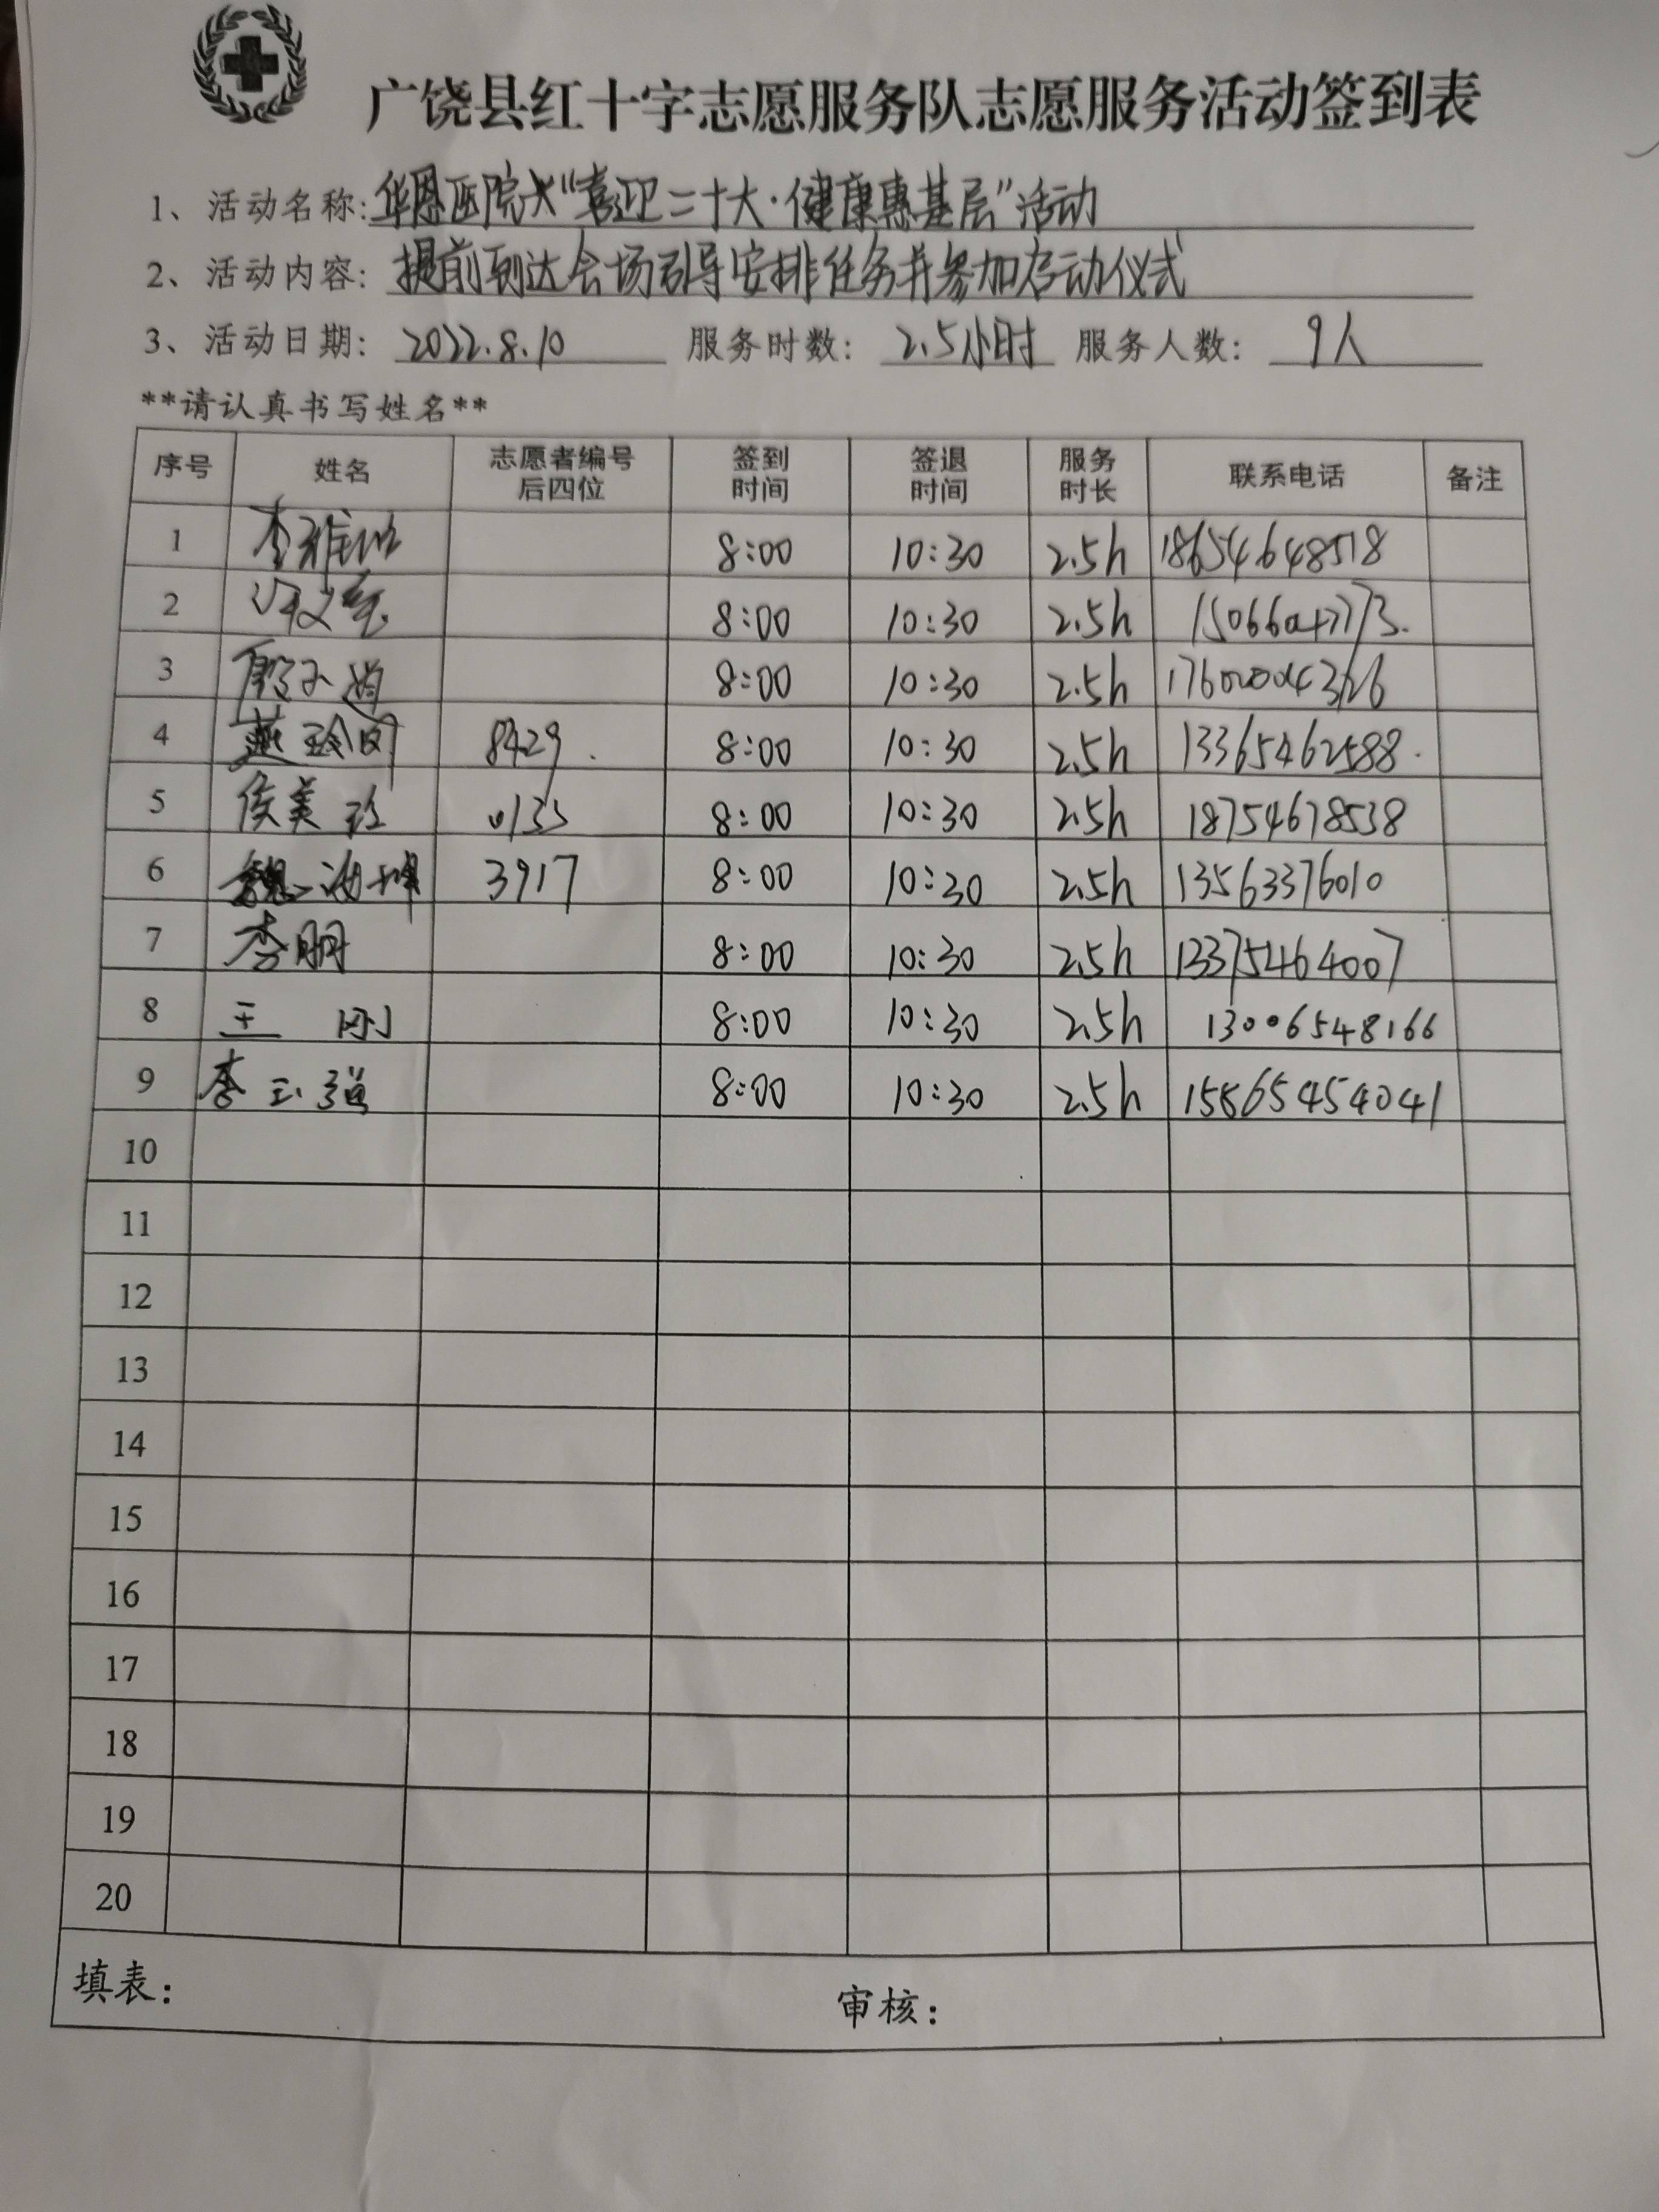 广饶县红十字志愿服务队志愿服务活动签到表
1、活动名称:华恩医院"喜迎二十大·健康惠基层"活动
2、活动内容:提前到达会场引导安排任务并参加启动仪式
3、活动日期:2022.8.10 服务时数:2.5小时 服务人数:9人
**请认真书写姓名**
序号 姓名 志愿者编号后四位 签到时间 签退时间 服务时长 联系电话 备注
1 李雅 8:00 10:30 2.5h 18654648518
2 8:00 10:30 2.5h
3 8:00 10:30 2.5h
4 燕 8429. 8:00 10:30 2.5h 13365462588.
5 侯美玲 0135 8:00 10:30 2.5h 18754678538
6 魏 3917 8:00 10:30 2.5h 13563376010
7 李朋 8:00 10:30 2.5h 13375464007
8 王刚 8:00 10:30 2.5h 13006548166
9 李玉强 8:00 10:30 2.5h 15865454041
10
11
12
13
14
15
16
17
18
19
20
填表: 审核: